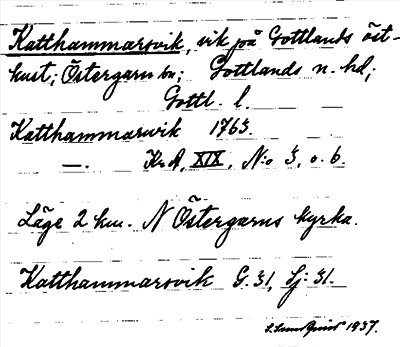 Katthammarsvik, vik på Gottlands öst-
kust; Östergarn sn; Gottlands n. hd;
Gottl. l.
Katthammarwik 1763.
—. KrA, XIX, N:o 3, o. 6.
Läge 2 km. N Östergarns kyrka.
Katthammarsvik G. 31, Sj: 31.
1937.